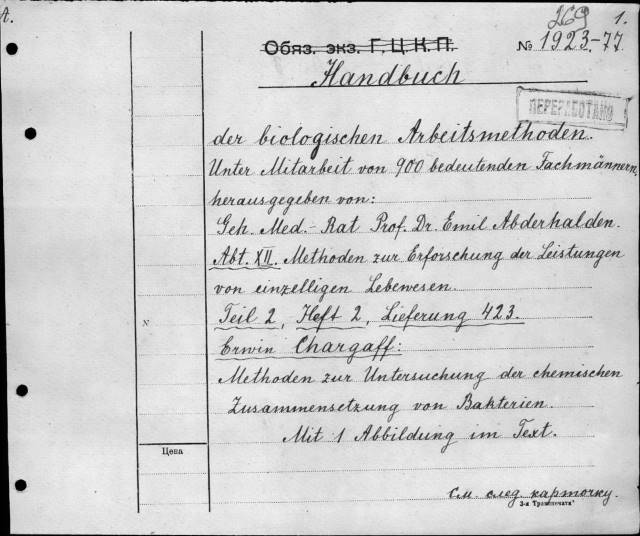 А.
269 1.
Обяз. экз. Г.Ц.К.П. № 1923-77
Handbuch
ПЕРЕРАБОТАНО
der biologischen Arbeitsmethoden.
Unter Mitarbeit von 900 bedeutenden Fachmännern,
herausgegeben von:
Geh. Med.-Rat Prof. Dr. Emil Abderhalden.
Abt. XII. Methoden zur Erforschung der Leistungen
von einzelligen Lebewesen.
Teil 2, Heft 2, Lieferung 423.
N
Erwin Chargaff:
Methoden zur Untersuchung der chemischen
Zusammensetzung von Bakterien.
Mit 1 Abbildung im Text.
Цена
См. след. карточку.
3-я "Транспечати"